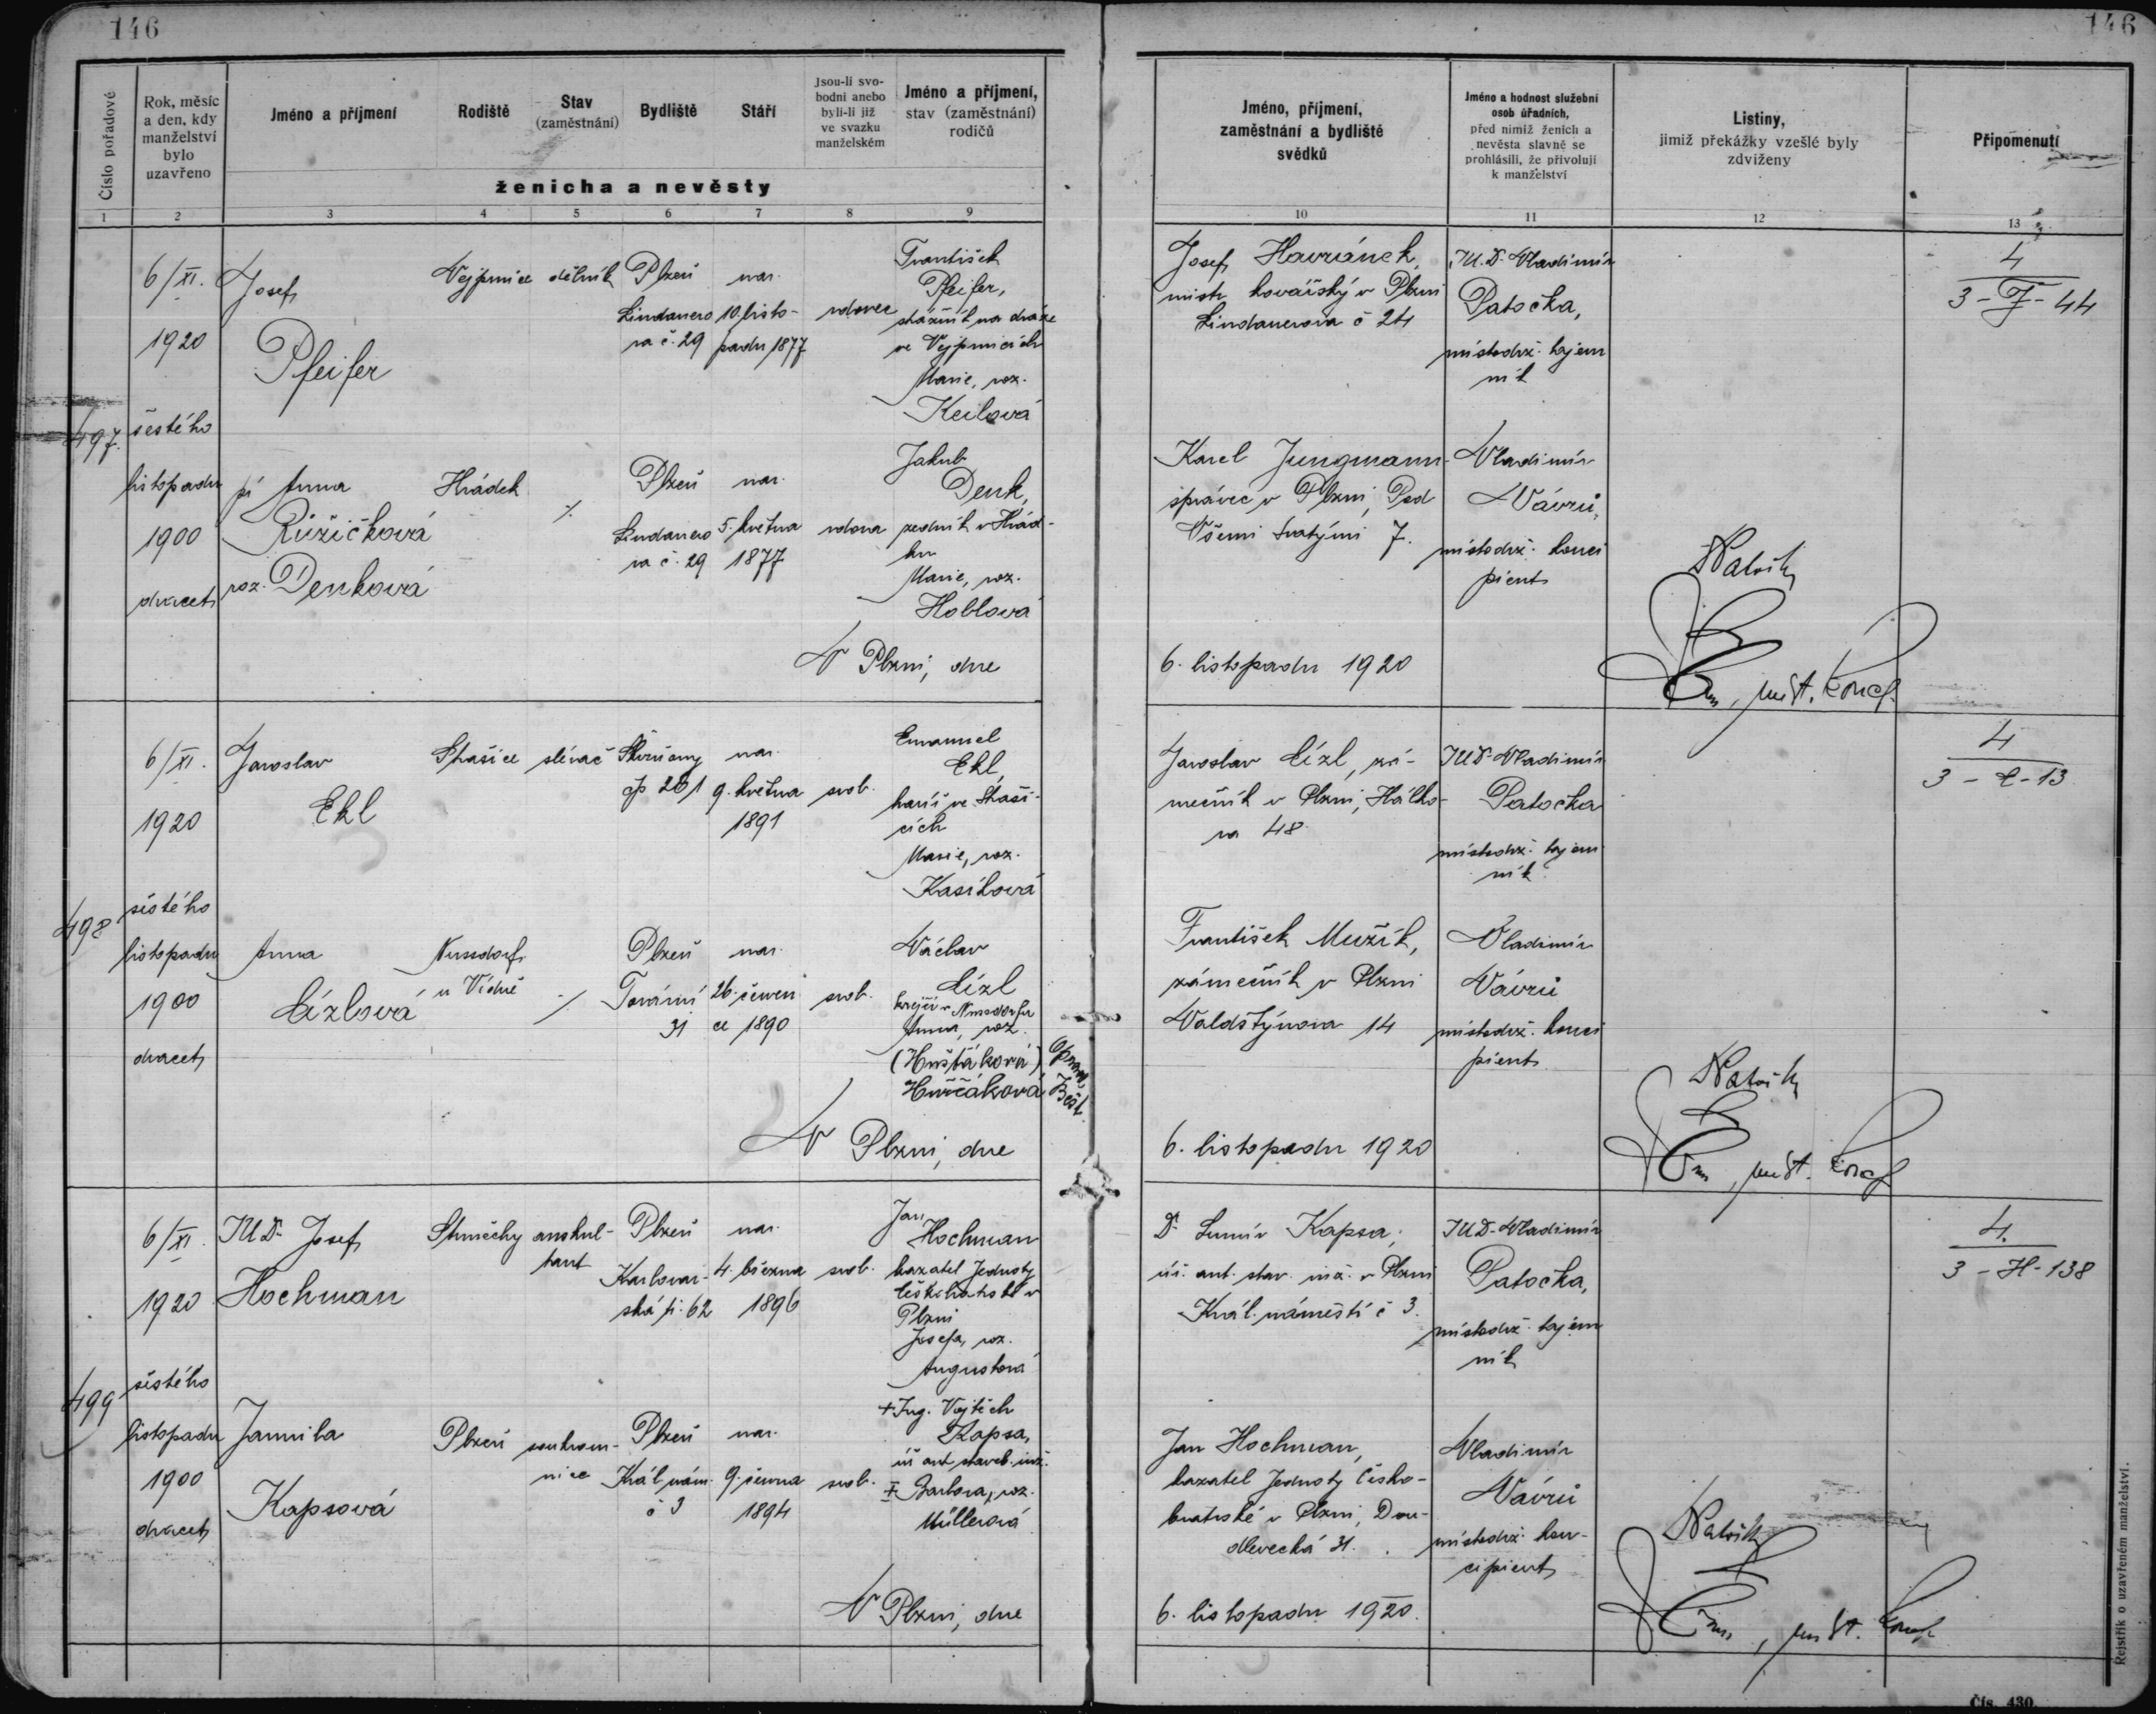 146
146
Číslo pořadové
Rok, měsíc
a den, kdy
manželství
bylo
uzavřeno
Jméno a příjmení
Rodiště
Stav
(zaměstnání)
Bydliště
Stáří
Jsou-li svo-
bodni anebo
byli-li již
ve svazku
manželském
Jméno a příjmení,
stav (zaměstnání)
rodičů
ženicha a nevěsty
Jméno, příjmení,
zaměstnání a bydliště
svědků
Jméno a hodnost služební
osob úřadních,
před nimiž ženich a
nevěsta slavně se
prohlásili, že přivolují
k manželství
Listiny,
jimiž překážky vzešlé byly
zdviženy
Připomenutí
1 2 3 4 5 6 7 8 9 10 11 12 13
497.
6/XI.
1920
šestého
listopadu
1900
dvacet
Josef
Pfeifer
Vejprnice
dělník
Plzeň
Lindauero
va č. 29
nar.
10. listo-
padu 1877
vdovec
František
Pfeifer,
strážník na dráze
ve Vejprnicích
Marie, roz.
Keilová
Josef Havránek,
mistr kovářský v Plzni
Lindauerova č 24
JUDr Vladimír
Patočka,
místodrž. tajem
ník
4
3 - F - 44
pí Anna
Růžičková
roz. Denková
Hrádek
Plzeň
Lindauero
va č. 29
nar.
5. května
1877
vdova
Jakub
Denk,
zedník v Hrád-
ku
Marie, roz.
Hoblová
Karel Jungmann
správce v Plzni, Pod
Všemi svatými 7.
Vladimír
Vávrů,
místodrž. konci
pient
V Plzni, dne
6. listopadu 1920
498
6/XI.
1920
šestého
listopadu
1900
dvacet
Jaroslav
Ekl
Strašice
slévač
Skvrňany
čp 201
nar.
9. května
1891
svob.
Emanuel
Ekl,
havíř ve Straši-
cích
Marie, roz.
Kasíková
Jaroslav Lízl, zá-
mečník v Plzni, Hálko-
va 48
JUDr Vladimír
Patočka
místodrž. tajem
ník
4
3 - E - 13
Anna
Lízlová
Nussdorf
u Vídně
Plzeň
Tovární
31
nar.
26. červen
ce 1890
svob.
Václav
Lízl
krejčí v Nussdorfu
Anna, roz.
(Hušťáková)
Huščáková
František Mužík,
zámečník v Plzni
Valdštýnova 14
Vladimír
Vávrů
místodrž. konci
pient
V Plzni, dne
6. listopadu 1920
499
6/XI.
1920
šestého
listopadu
1900
dvacet
JUDr Josef
Hochman
Strměchy
auskul-
tant
Plzeň
Karlovar-
ská tř. 62
nar.
4. března
1896
svob.
Jan
Hochman
kazatel Jednoty
českobratrské v
Plzni
Josefa, roz.
Augustová
Dr Lumír Kapsa,
úř. aut. stav. inž. v Plzni
Král. náměstí č 3.
JUDr Vladimír
Patočka,
místodrž. tajem
ník
4.
3 - H - 138
Jarmila
Kapsová
Plzeň
soukrom-
nice
Plzeň
Král. nám.
č 3
nar.
9. června
1894
svob.
+ Ing. Vojtěch
Kapsa,
úř. aut. staveb. inž.
Barbora, roz.
Müllerová
Jan Hochman,
kazatel Jednoty česko-
bratrské v Plzni, Dou-
dlevecká 31.
Vladimír
Vávrů
místodrž. kon-
cipient
V Plzni, dne
6. listopadu 1920.
Rejstřík o uzavřeném manželství.
Čís. 430.